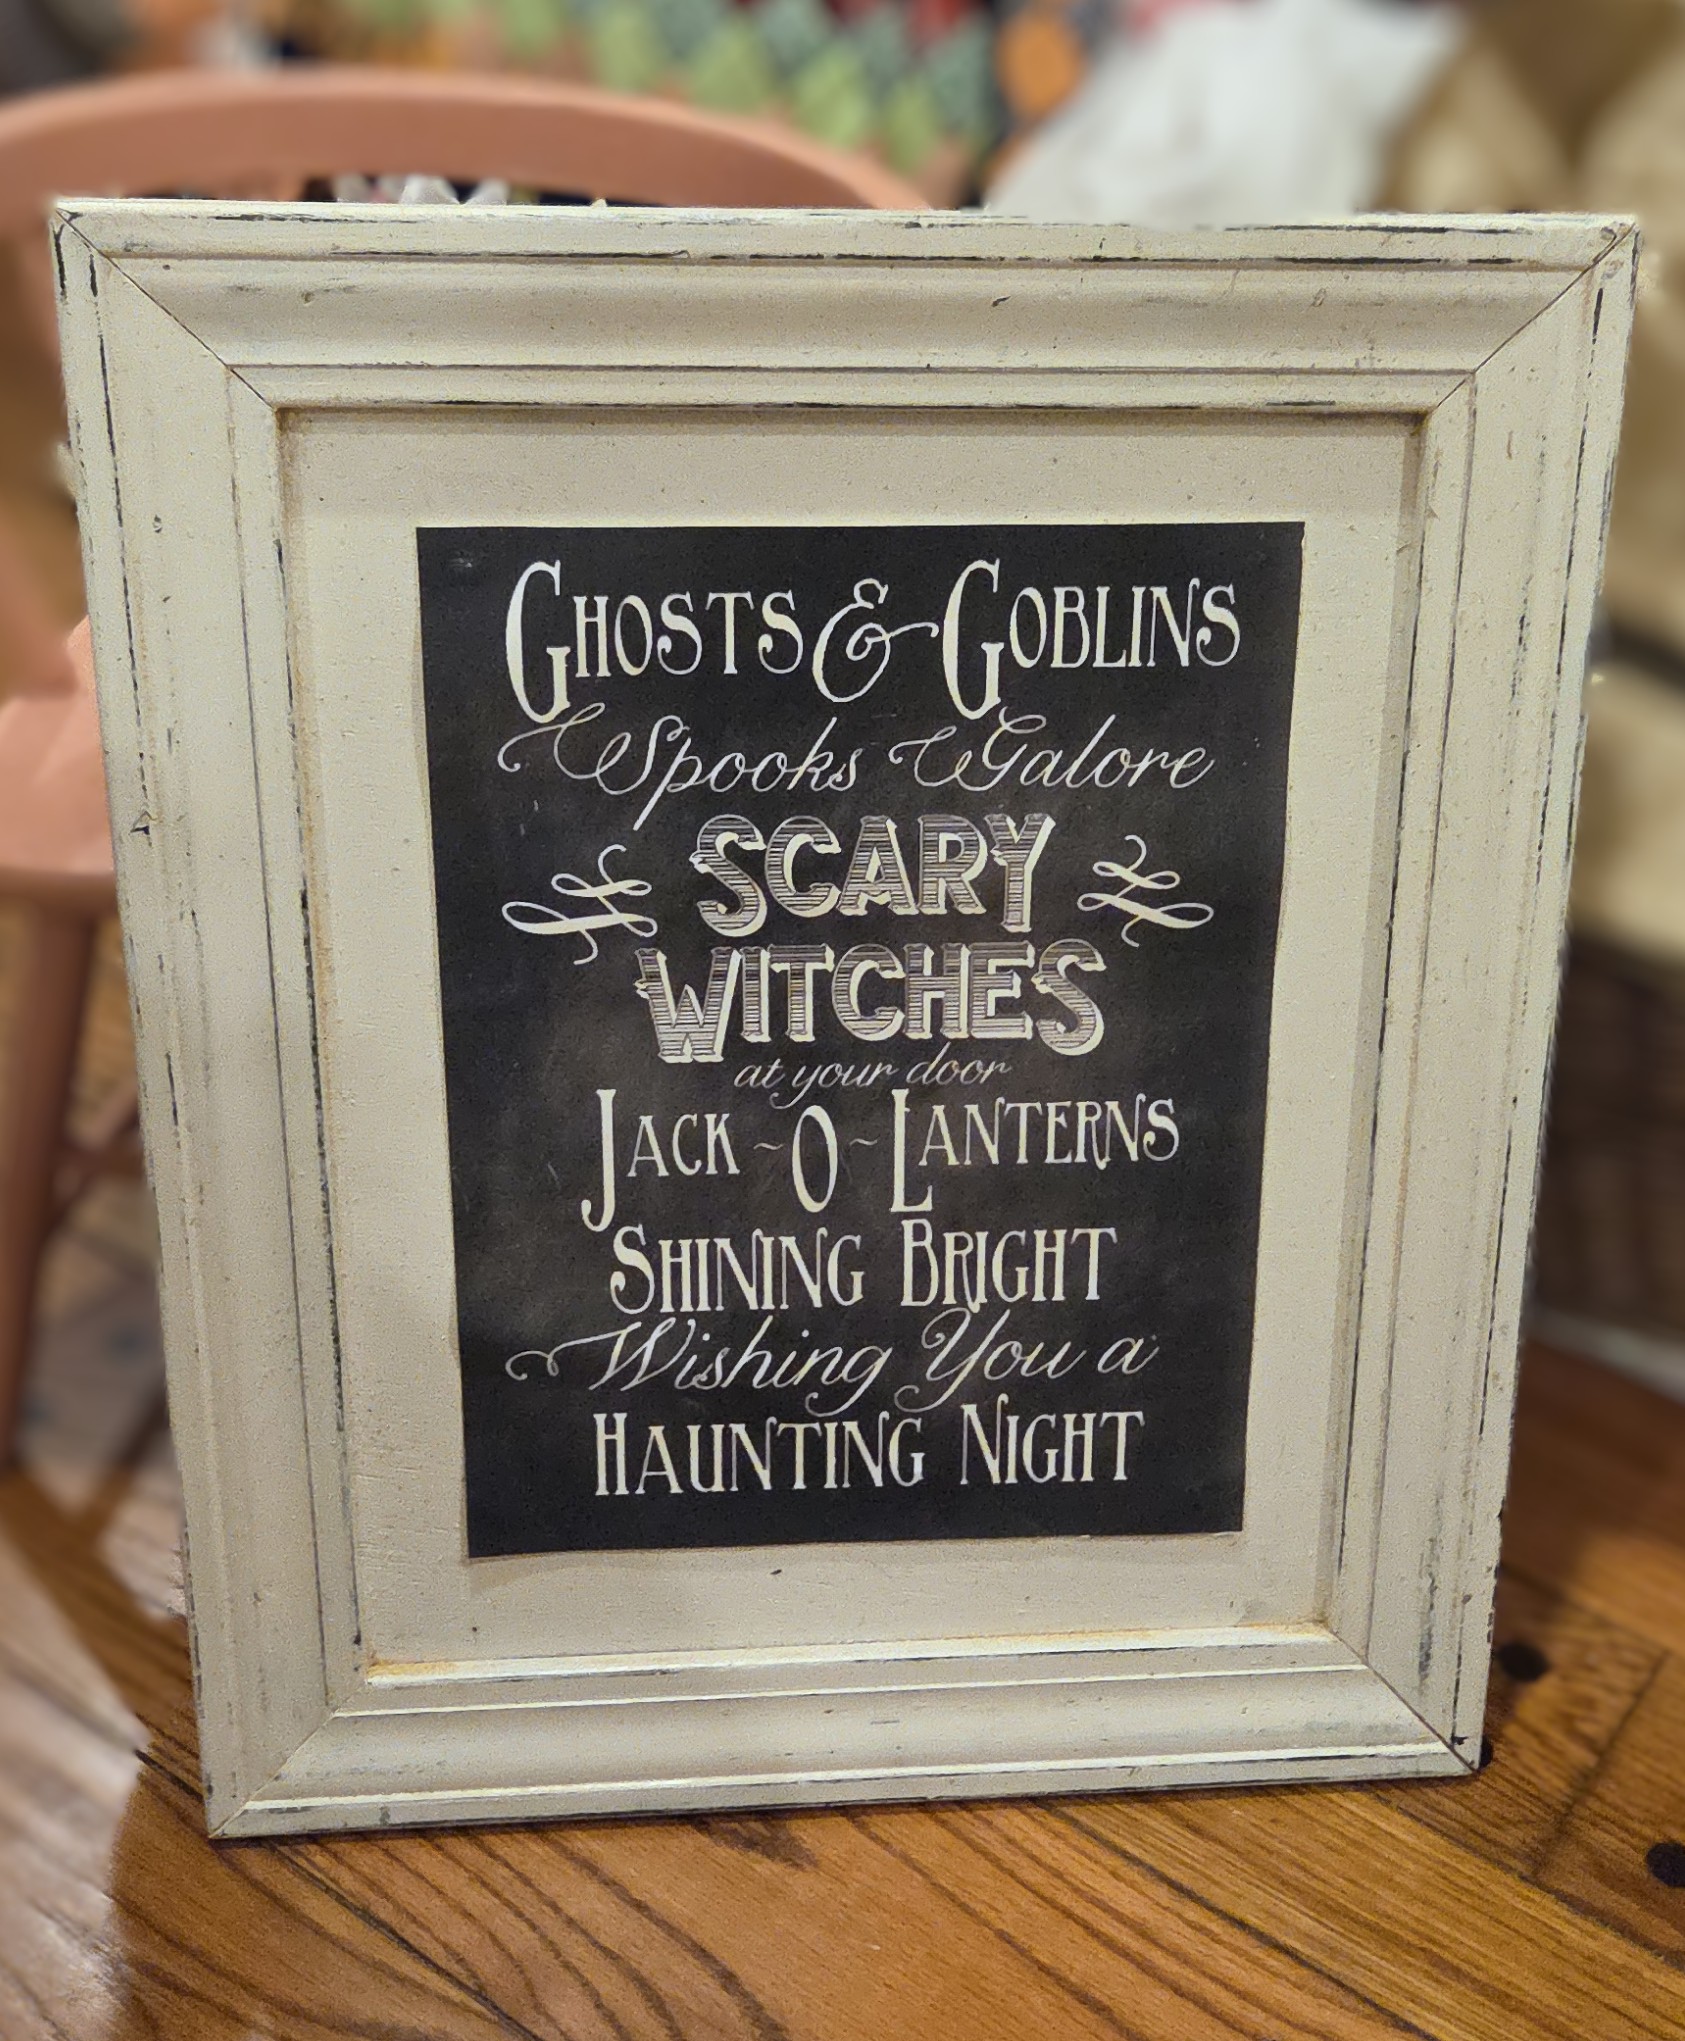 Ghosts & Goblins
Spooks Galore
SCARY
WITCHES
at your door
Jack~O~Lanterns
Shining Bright
Wishing You a
Haunting Night